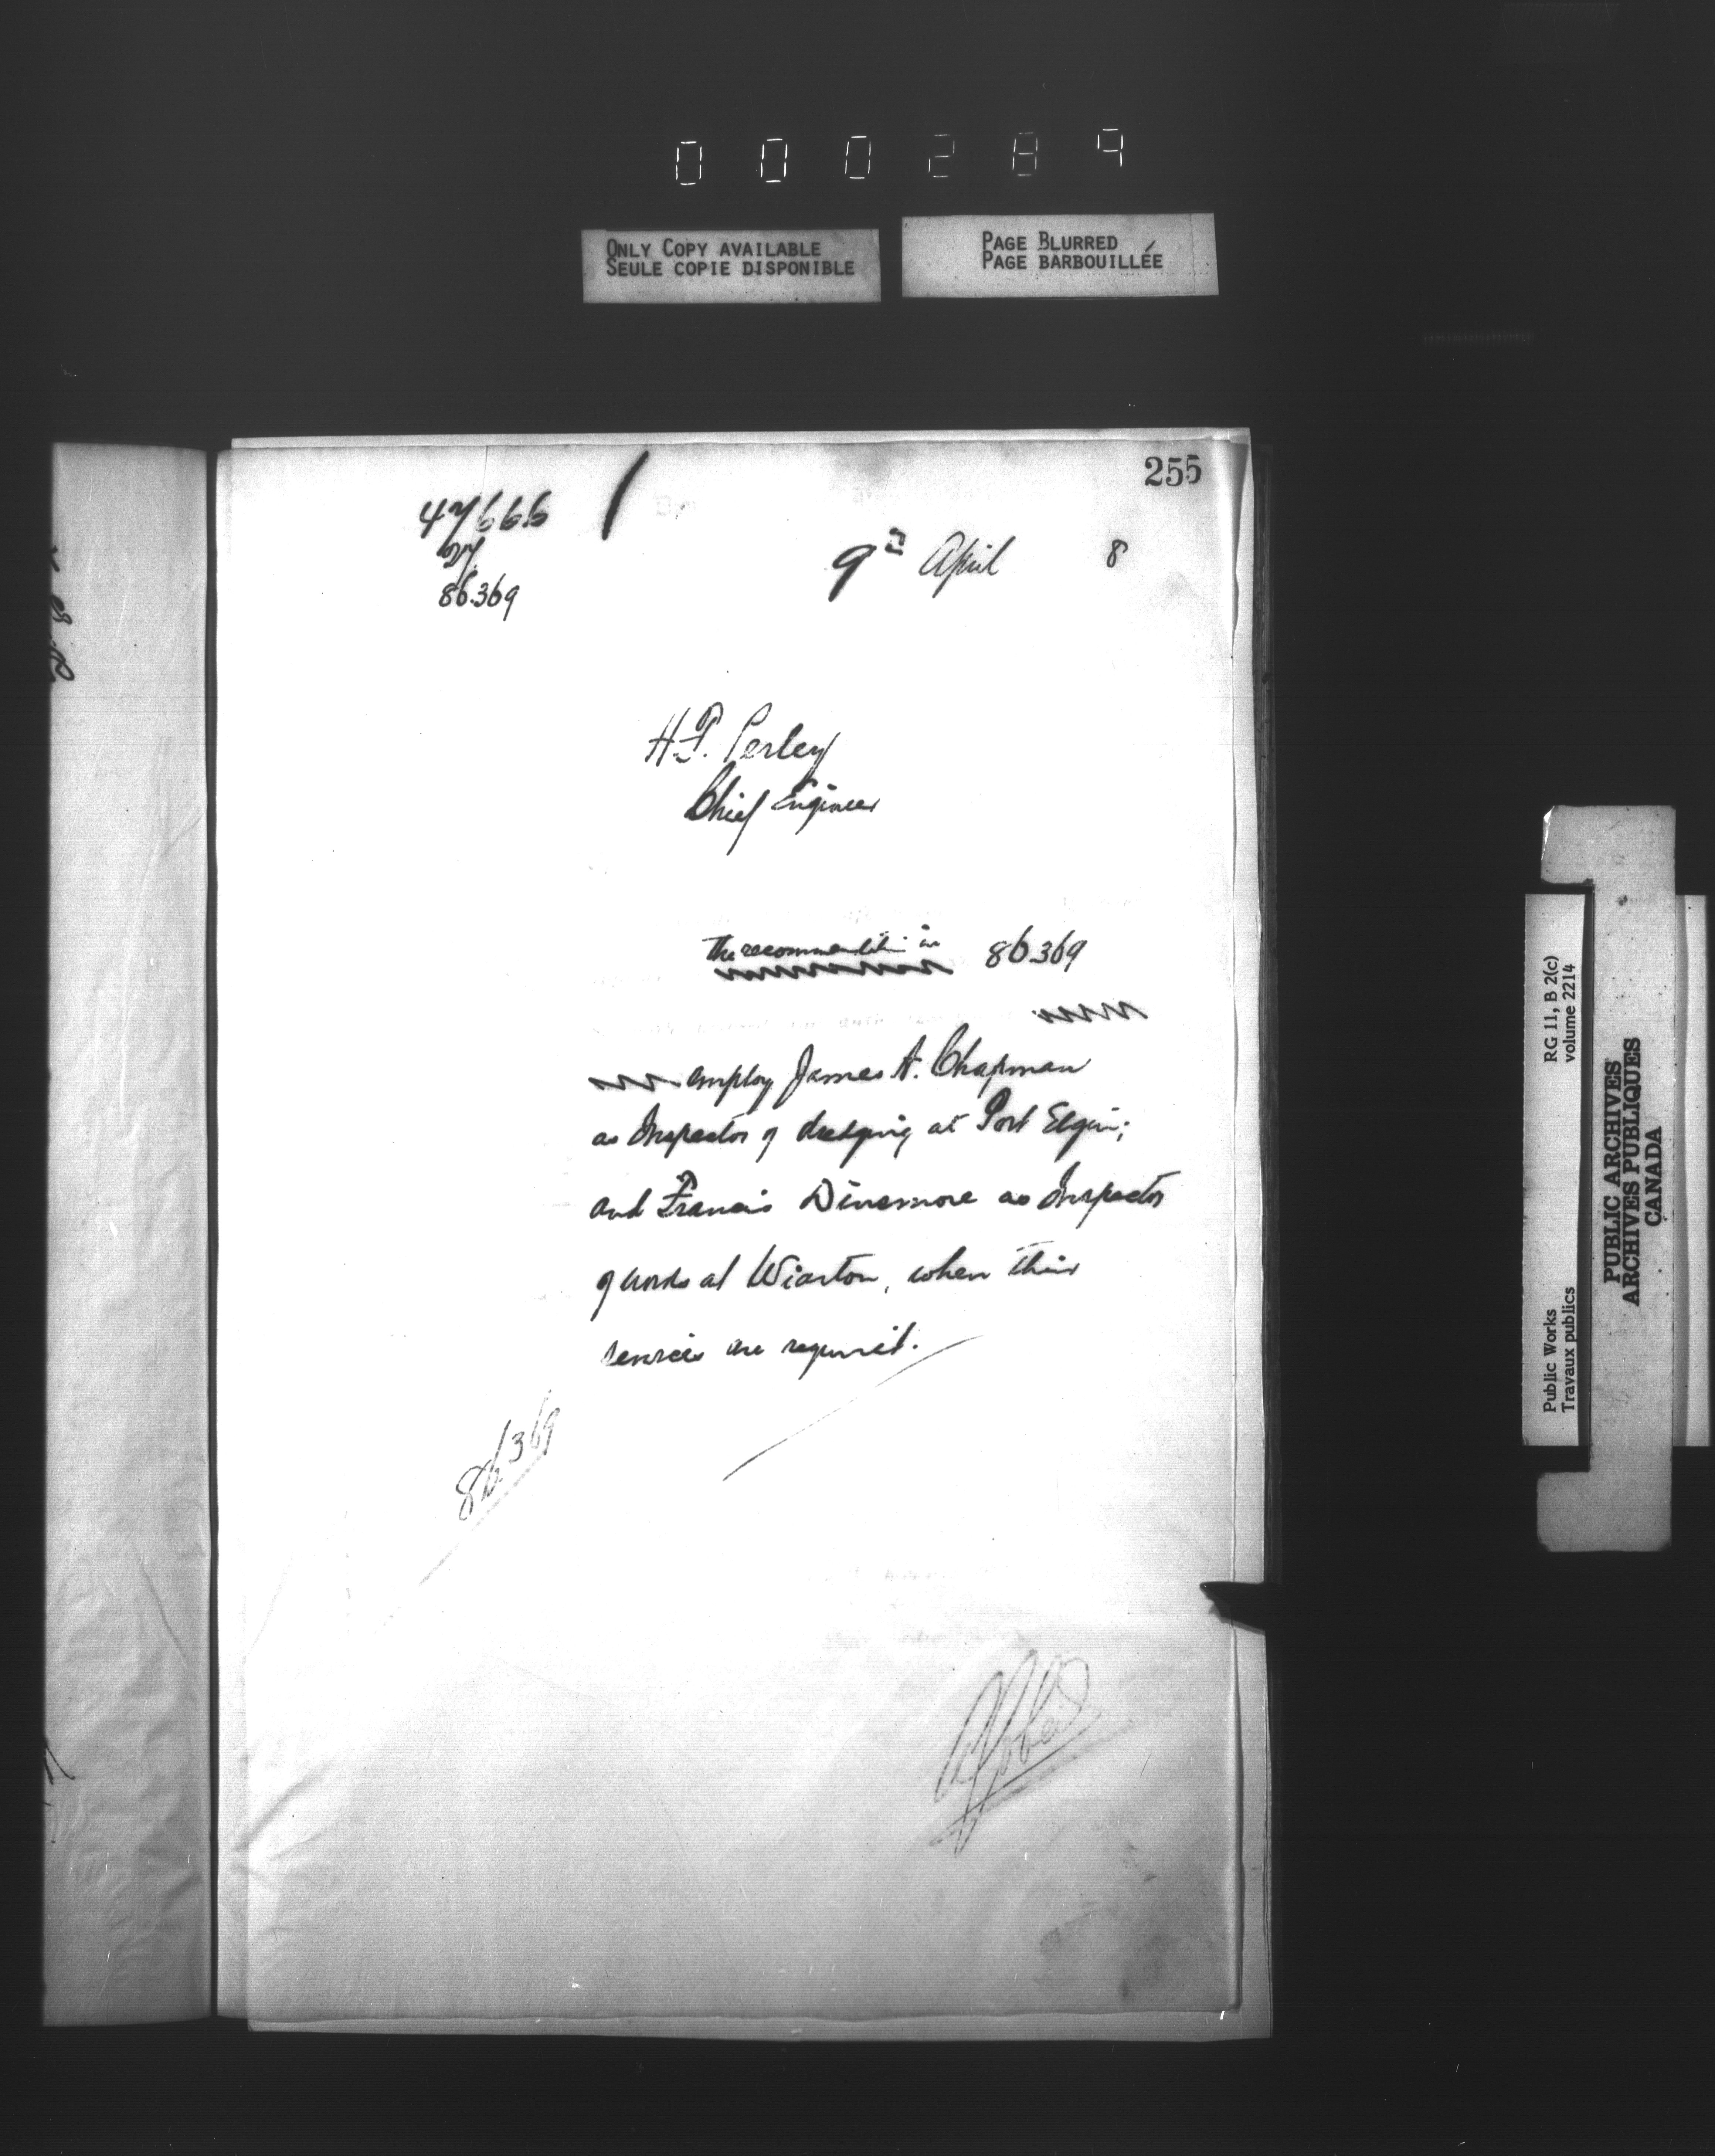 000289
ONLY COPY AVAILABLE
SEULE COPIE DISPONIBLE
PAGE BLURRED
PAGE BARBOUILLÉE
255
47666
86369
9th April 8
H.F. Perley
Chief Engineer
The recommendation in 86369
employ James A. Chapman
as Inspector of dredging at Port Elgin;
and Francis Dinsmore as Inspector
of works at Wiarton, when their
services are required.
86369
RG 11, B 2(c)
volume 2214
Public Works
Travaux publics
PUBLIC ARCHIVES
ARCHIVES PUBLIQUES
CANADA